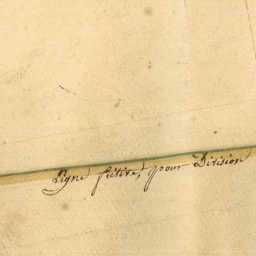 Ligne fictive, pour Division